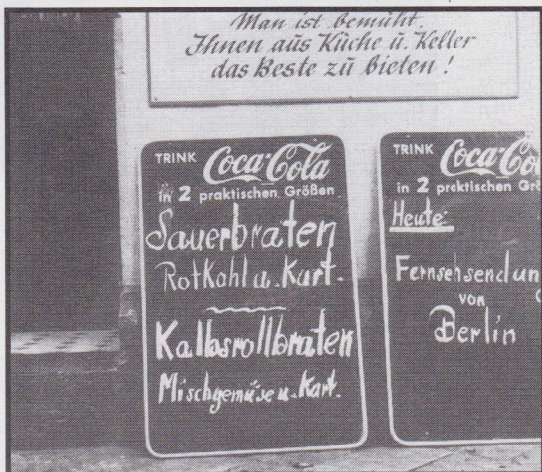 Man ist bemüht
Ihnen aus Küche u. Keller
das Beste zu bieten!
TRINK Coca-Cola
in 2 praktischen Größen
Sauerbraten
Rotkohl u. Kart.
Kalbsrollbraten
Mischgemüse u. Kart.
TRINK Coca-Co
in 2 praktischen Grö
Heute:
Fernsehsendun
von
Berlin